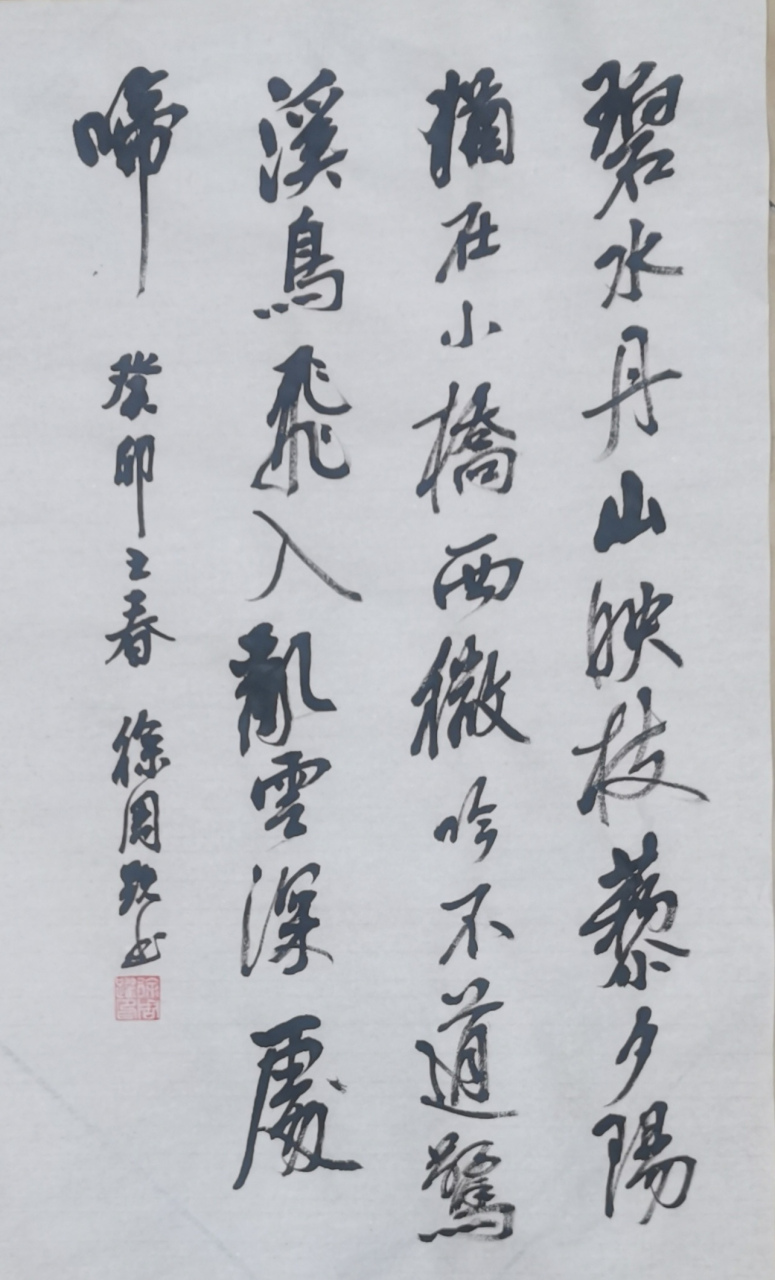 碧水丹山映枝藜夕陽
猶在小橋西微吟不道驚
溪鳥飛入亂雲深處
啼 癸卯之春 徐周